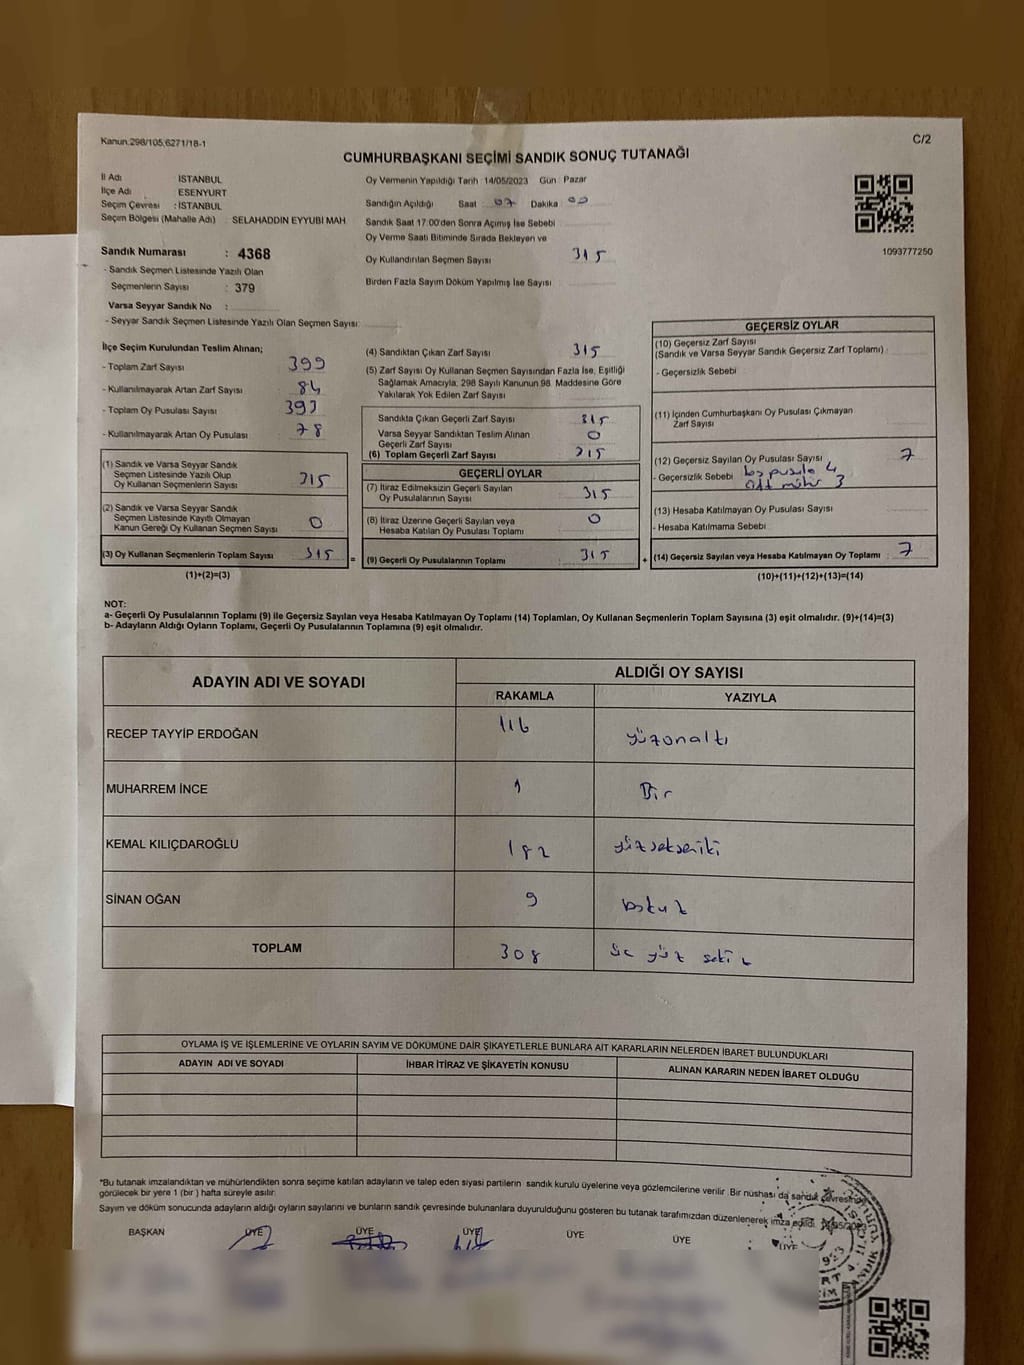 Kanun.298/105,6271/18-1
C/2
CUMHURBAŞKANI SEÇİMİ SANDIK SONUÇ TUTANAĞI
İl Adı İSTANBUL
İlçe Adı ESENYURT
Seçim Çevresi : İSTANBUL
Seçim Bölgesi (Mahalle Adı) : SELAHADDIN EYYUBI MAH.
Oy Vermenin Yapıldığı Tarih 14/05/2023 Gün Pazar
Sandığın Açıldığı Saat 07 Dakika 00
Sandık Saat 17:00'den Sonra Açımış İse Sebebi
Oy Verme Saati Bitiminde Sırada Bekleyen ve
Oy Kullandırılan Seçmen Sayısı 315
Birden Fazla Sayım Döküm Yapılmış İse Sayısı
1093777250
Sandık Numarası : 4368
- Sandık Seçmen Listesinde Yazılı Olan
Seçmenlerin Sayısı : 379
Varsa Seyyar Sandık No :
- Seyyar Sandık Seçmen Listesinde Yazılı Olan Seçmen Sayısı:
İlçe Seçim Kurulundan Teslim Alınan;
- Toplam Zarf Sayısı 399
- Kullanılmayarak Artan Zarf Sayısı 84
- Toplam Oy Pusulası Sayısı 393
- Kullanılmayarak Artan Oy Pusulası 78
(1) Sandık ve Varsa Seyyar Sandık
Seçmen Listesinde Yazılı Olup
Oy Kullanan Seçmenlerin Sayısı 315
(2) Sandık ve Varsa Seyyar Sandık
Seçmen Listesinde Kayıtlı Olmayan
Kanun Gereği Oy Kullanan Seçmen Sayısı 0
(3) Oy Kullanan Seçmenlerin Toplam Sayısı 315 =
(1)+(2)=(3)
(4) Sandıktan Çıkan Zarf Sayısı 315
(5) Zarf Sayısı Oy Kullanan Seçmen Sayısından Fazla İse, Eşitliği
Sağlamak Amacıyla; 298 Sayılı Kanunun 98. Maddesine Göre
Yakılarak Yok Edilen Zarf Sayısı
Sandıkta Çıkan Geçerli Zarf Sayısı 315
Varsa Seyyar Sandıktan Teslim Alınan
Geçerli Zarf Sayısı 0
(6) Toplam Geçerli Zarf Sayısı 315
GEÇERLİ OYLAR
(7) İtiraz Edilmeksizin Geçerli Sayılan
Oy Pusulalarının Sayısı 315
(8) İtiraz Üzerine Geçerli Sayılan veya
Hesaba Katılan Oy Pusulaları Toplamı 0
(9) Geçerli Oy Pusulalarının Toplamı 315 +
GEÇERSİZ OYLAR
(10) Geçersiz Zarf Sayısı
(Sandık ve Varsa Seyyar Sandık Geçersiz Zarf Toplamı) :
- Geçersizlik Sebebi
(11) İçinden Cumhurbaşkanı Oy Pusulası Çıkmayan
Zarf Sayısı
(12) Geçersiz Sayılan Oy Pusulası Sayısı 7
- Geçersizlik Sebebi boş pusula 4
mühür 3
(13) Hesaba Katılmayan Oy Pusulası Sayısı
- Hesaba Katılmama Sebebi
(14) Geçersiz Sayılan veya Hesaba Katılmayan Oy Toplamı : 7
(10)+(11)+(12)+(13)=(14)
NOT:
a- Geçerli Oy Pusulalarının Toplamı (9) ile Geçersiz Sayılan veya Hesaba Katılmayan Oy Toplamı (14) Toplamları, Oy Kullanan Seçmenlerin Toplam Sayısına (3) eşit olmalıdır. (9)+(14)=(3)
b- Adayların Aldığı Oyların Toplamı, Geçerli Oy Pusulalarının Toplamına (9) eşit olmalıdır.
ADAYIN ADI VE SOYADI
ALDIĞI OY SAYISI
RAKAMLA YAZIYLA
RECEP TAYYİP ERDOĞAN 116 yüzonaltı
MUHARREM İNCE 1 Bir
KEMAL KILIÇDAROĞLU 182 yüzsekseniki
SİNAN OĞAN 9 Dokuz
TOPLAM 308 üç yüz sekiz
OYLAMA İŞ VE İŞLEMLERİNE VE OYLARIN SAYIM VE DÖKÜMÜNE DAİR ŞİKAYETLERLE BUNLARA AİT KARARLARIN NELERDEN İBARET BULUNDUKLARI
ADAYIN ADI VE SOYADI İHBAR İTİRAZ VE ŞİKAYETİN KONUSU ALINAN KARARIN NEDEN İBARET OLDUĞU
*Bu tutanak imzalandıktan ve mühürlendikten sonra seçime katılan adayların ve talep eden siyasi partilerin sandık kurulu üyelerine veya gözlemcilerine verilir. Bir nüshası da sandık çevresinde
görülecek bir yere 1 (bir) hafta süreyle asılır.
Sayım ve döküm sonucunda adayların aldığı oyların sayılarını ve bunların sandık çevresinde bulunanlara duyurulduğunu gösteren bu tutanak tarafımızdan düzenlenerek imza edildi.
BAŞKAN ÜYE ÜYE ÜYE ÜYE ÜYE ÜYE